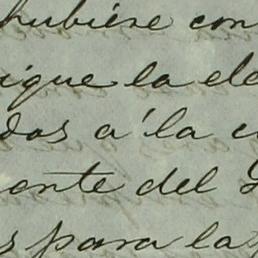 hubiere con
igue la de
dos a' la c
onte del
s para la